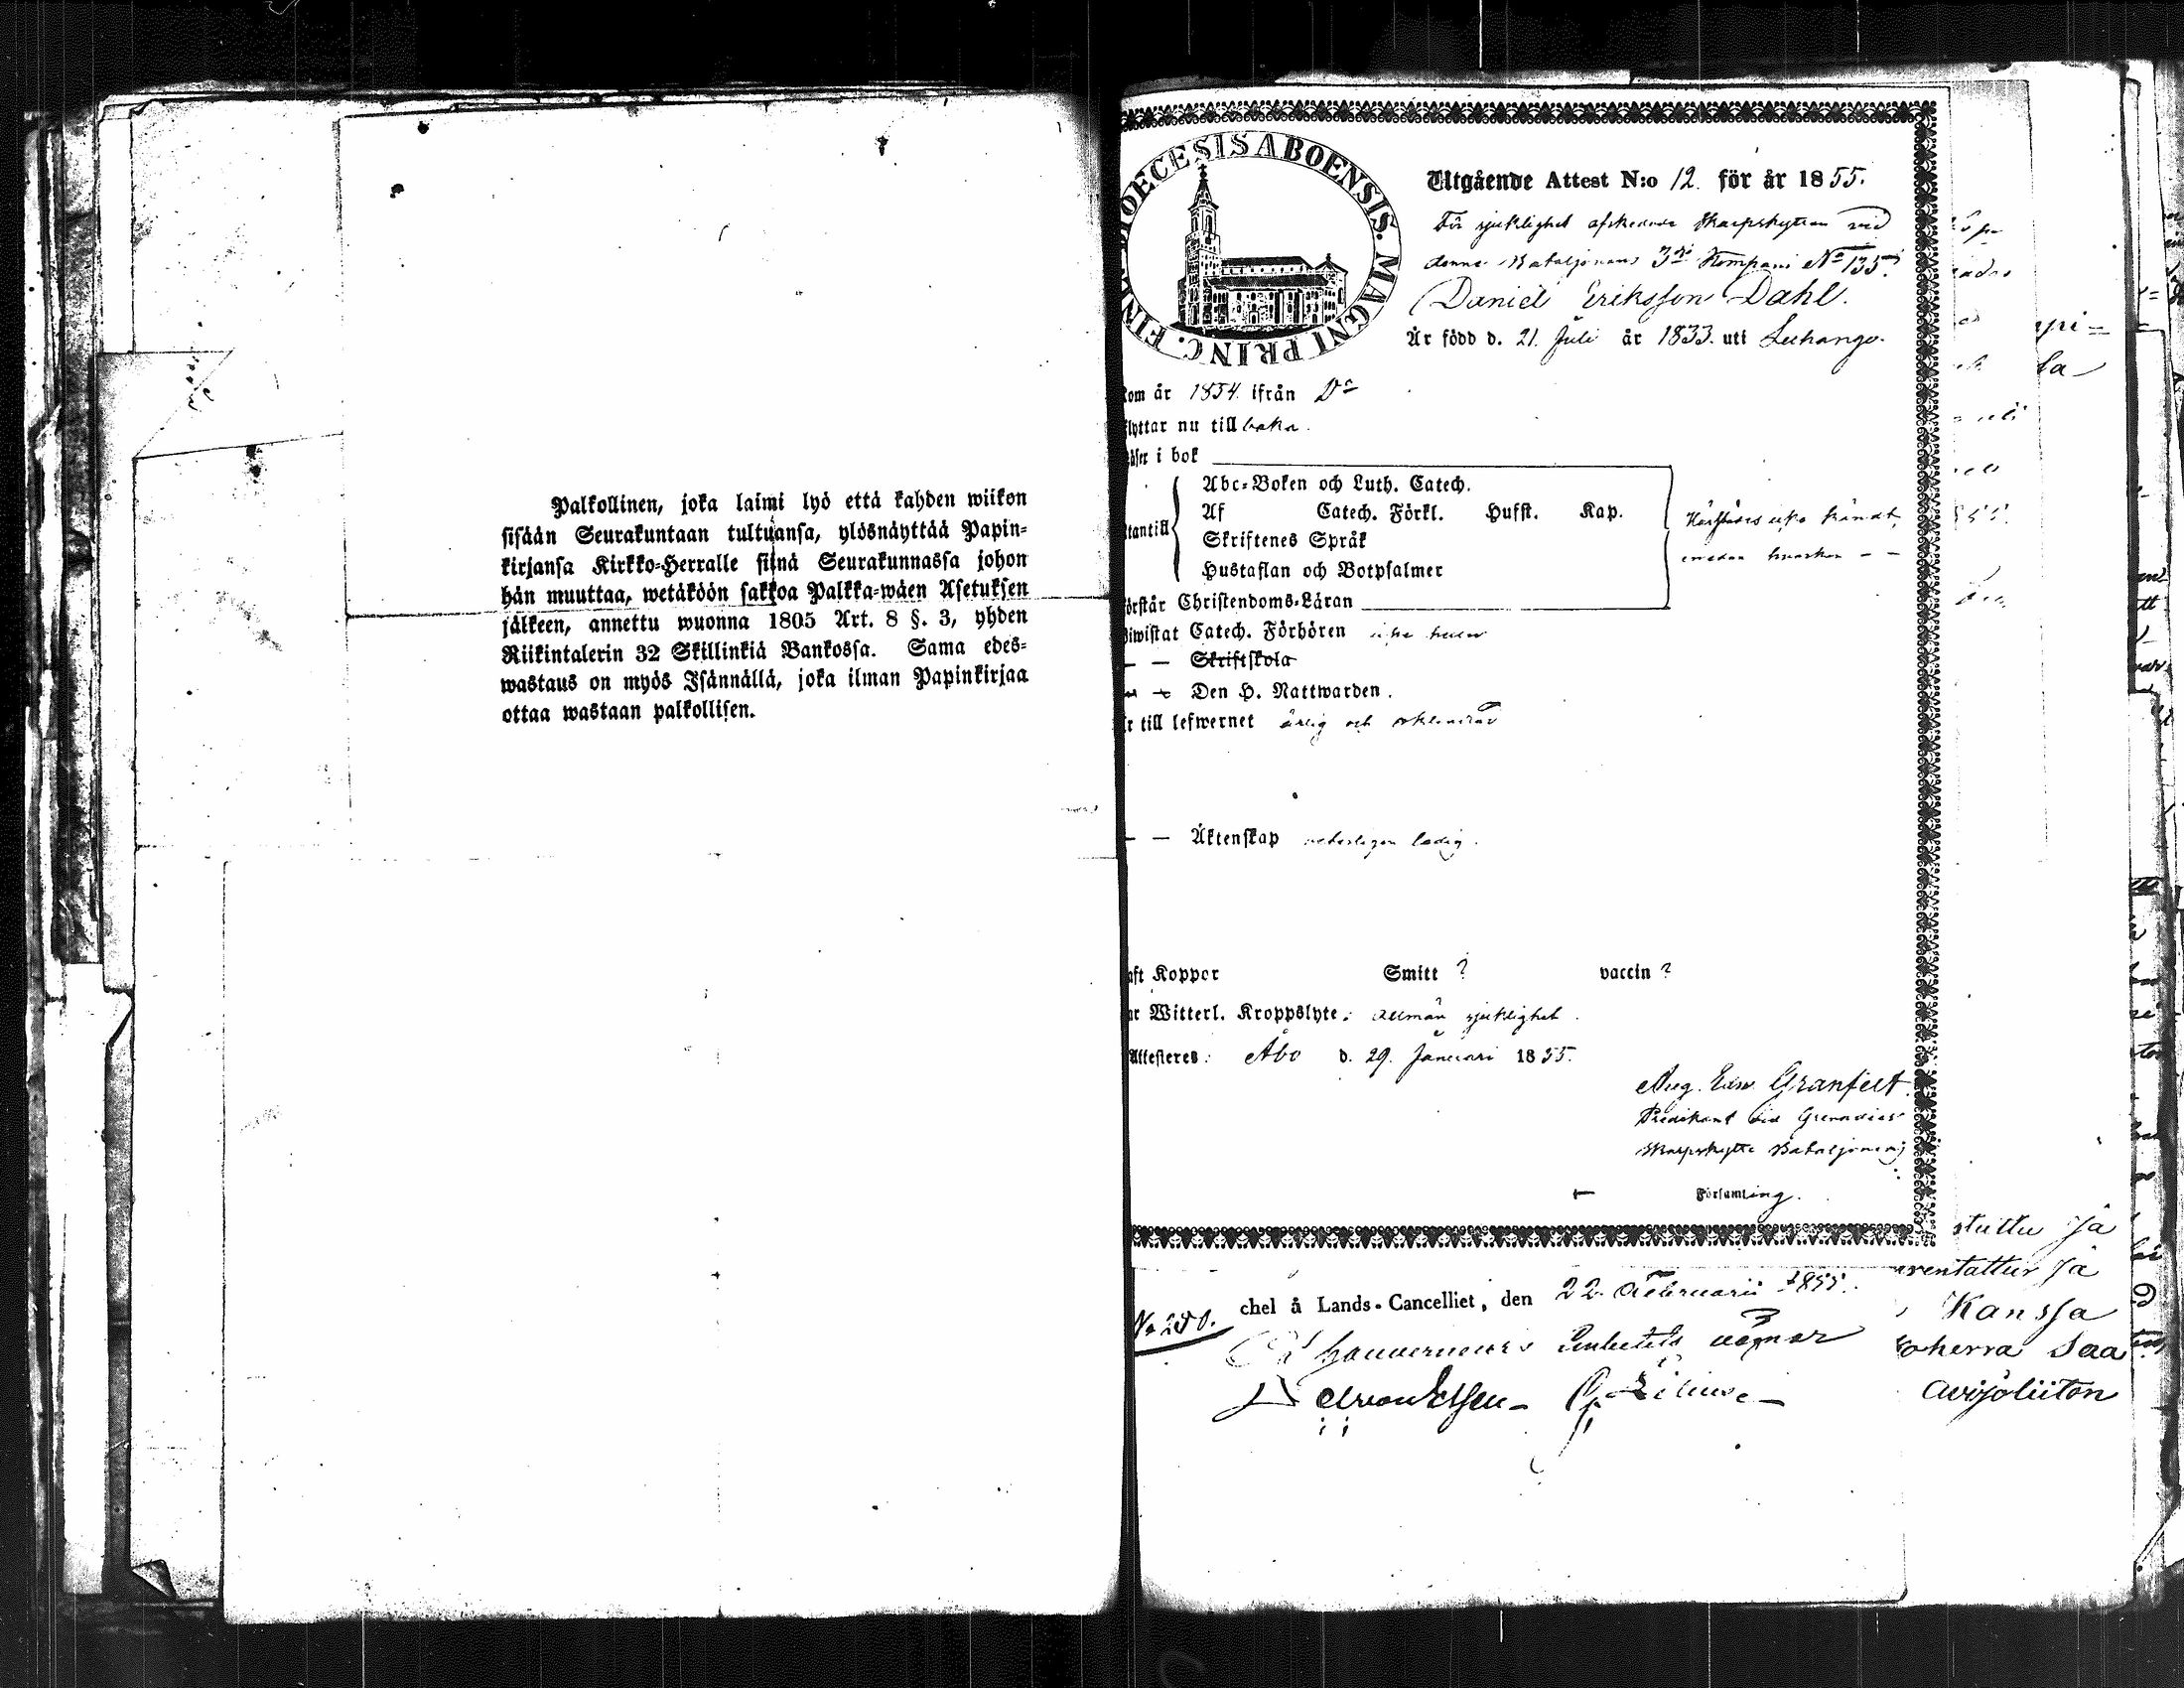 Palkollinen, joka laimi lyö että kahden wiikon
sisään Seurakuntaan tultuansa, ylösnäyttää Papin-
kirjansa Kirkko-Herralle siinä Seurakunnassa johon
hän muuttaa, wetäköön sakkoa Palkka-wäen Asetuksen
jälkeen, annettu wuonna 1805 Art. 8 §. 3, yhden
Riikintalerin 32 Skillinkiä Bankossa. Sama edes-
wastaus on myös Isännällä, joka ilman Papinkirjaa
ottaa wastaan palkollisen.
DIOECESIS ABOENSIS. MAGNI PRINC. FINL.
Utgående Attest N:o 12. för år 1855.
För sjuklighet afskedade Skarpskytten vid
denne Bataljonens 3dje Kompani No 135.
Daniel Eriksson Dahl.
Är född d. 21. Juli år 1833. uti Luhango.
kom år 1854. ifrån Do
flyttar nu tillbaka.
läser i bok
Abc-Boken och Luth. Catech.
Af Catech. Förkl. Husst. Kap.
utantill
Skriftenes Språk
Hustaflan och Botpsalmer
förstår Christendoms-Läran
Härstädes icke kändt,
medan hvarken - -
biwistat Catech. Förhören icke heller
— — Skriftskola
— Den H. Nattwarden.
är till lefwernet ärlig och oklandrad
— — Äktenskap ledig.
haft Koppor Smitt ? vaccin ?
har Witterl. Kroppslyte: allmän sjuklighet.
Attesteres: Åbo d. 29. Januari 1855.
Aug. Edv. Granfelt
Predikant vid Grenadier
Skarpskytte Bataljonen
Församling.
No 280.
chel å Lands-Cancelliet, den 22 Februarii 1855.
Gouverneurs Embetets vägnar
stuttu ja
ja
Kanssa
Saa